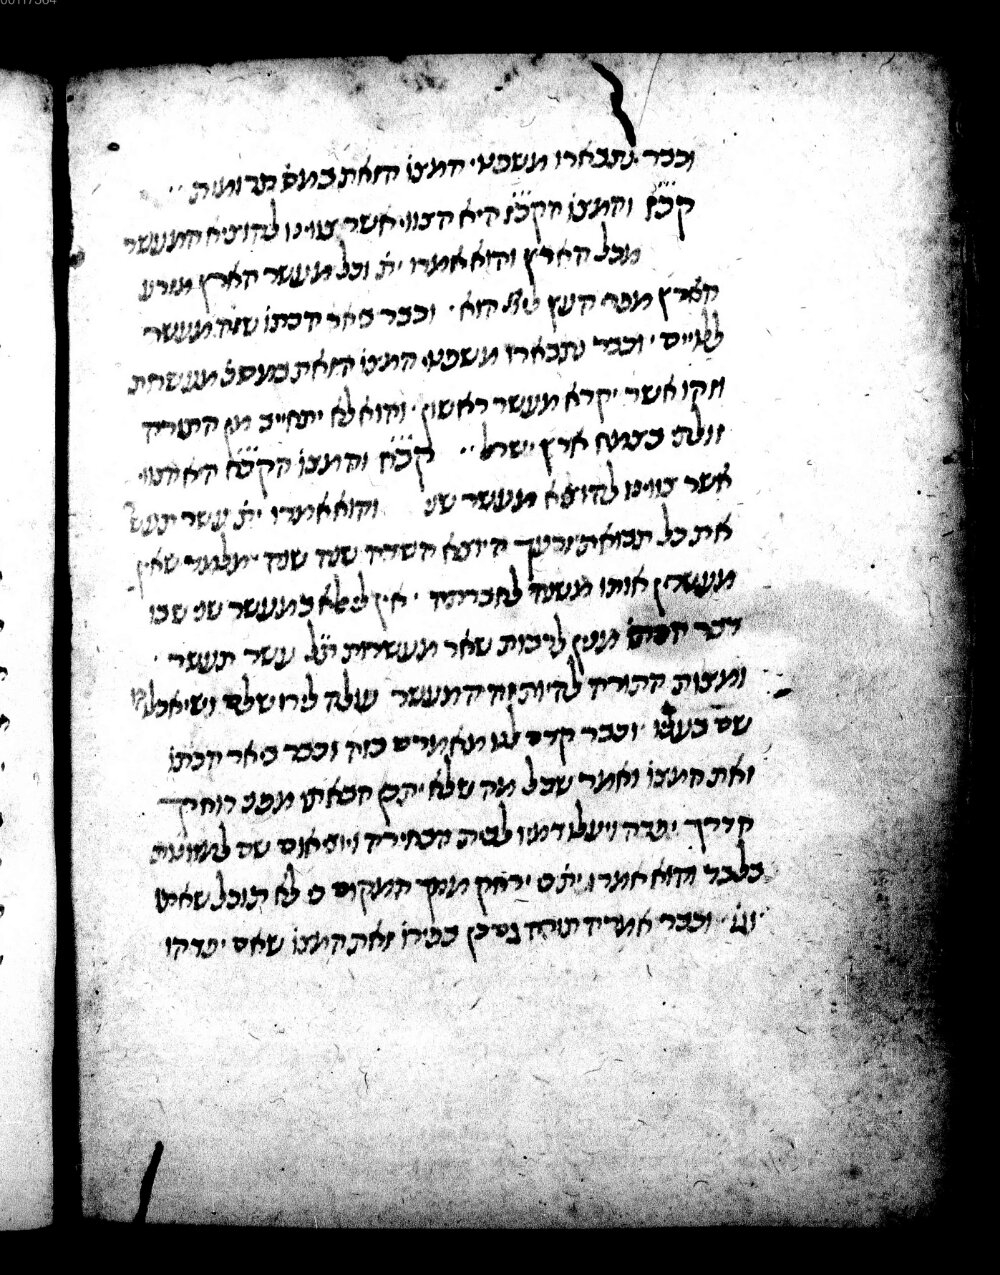 00117564
וכבר נתבארו משפטי המצו הזאת במס תרומות ׃
קכ״ז והמצו הקכ״ז היא הצווי אשר צוינו להוציא המעשר
מכל הארץ והוא אמרו ית׳ וכל מעשר הארץ מזרע
הארץ מפרי העץ ליי׳ הוא ׳ וכבר באר הכתו שזה מעשר
ללויים ׳ וכבר נתבארו משפטי המצו הזאת במסכ מעשרות
וזהו אשר יקרא מעשר ראשון ׳ והוא לא יתחייב מן התורה
זולתי בצמח ארץ ישרל ׃ קכ״ח והמצו הקכ״ח היא הצווי
אשר צוינו להוציא מעשר שני והוא אמרו ית׳ עשר תעש
את כל תבואת זרעך היוצא השדה שנה שנה ׳ מלמד שאין
מעשרין אותו משנה לחברתה ׳ אין לי אלא במעשר שני שבו
דבר הכתו׳ מנין לרבות שאר מעשרות ת״ל עשר תעשר ׳
ומצות התורה להיות זה המעשר עולה לירושלם ושיאכלו
שם בעליו ׳ וכבר קדם לנו מאמרים בזה וכבר ביאר הכתו
זאת המצו ואמר שכל מה שלא יתכן הבאתו מפני רוחק
הדרך יפדה ויעלו דמיו לבית הבחירה ויוציאום שם למזונות
בלבד והוא אמרו ית׳ כי ירחק ממך המקום כי לא תוכל שאתו
וגו׳ ׳ וכבר אמרה תורה גם כן בפירו זאת המצו שאם יפדהו